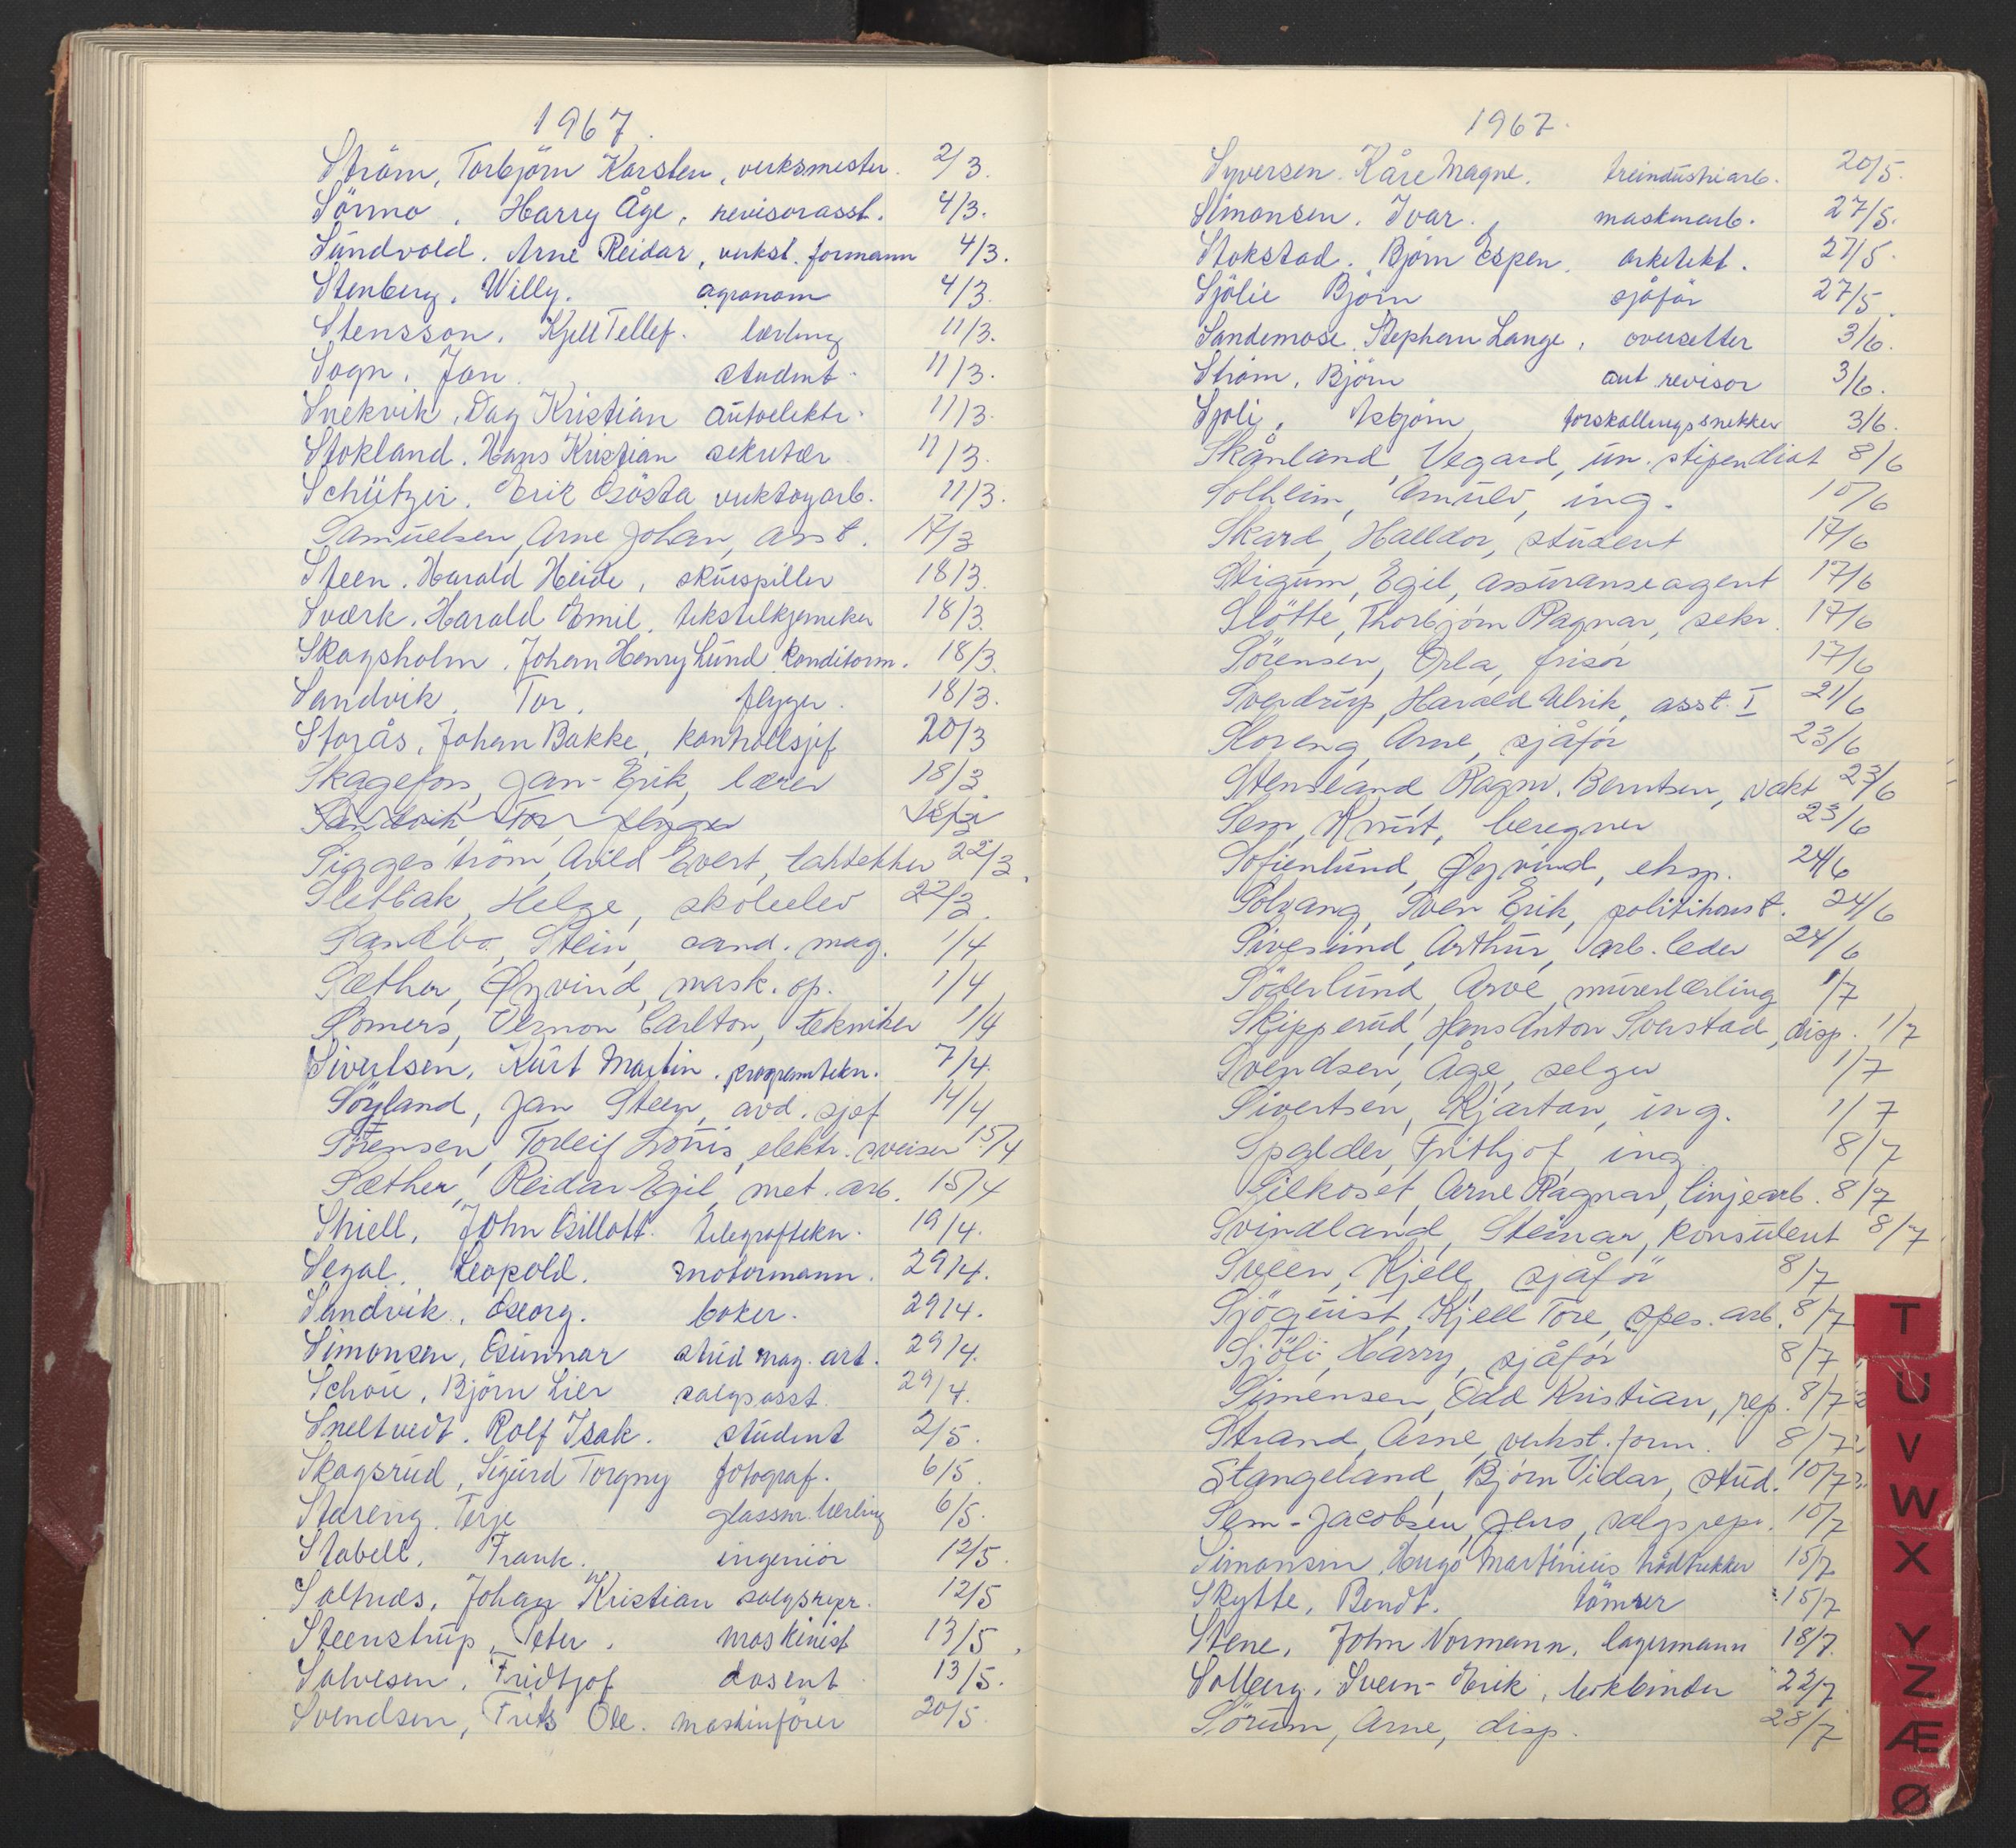 1967.
Ström, Torbjörn Karsten, verksmester. 2/3.
Sörmo, Harry Åge, revisorasst. 4/3.
Sundvold, Arne Reidar, verkst. formann 4/3.
Stenberg, Willy. agronom 4/3.
Stensson, Kjell Tellef. lærling 11/3.
Sogn, Jan student. 11/3.
Snekvik, Dag Kristian autoelektr. 11/3.
Stokland, Hans Kristian sekretær 11/3.
Schützer, Erik Gösta verktøyarb. 11/3.
Samuelsen, Arne Johan, asst. 17/3
Steen, Harald Heide, skuespiller 18/3.
Sværk, Harald Emil, tekstilkjemiker 18/3.
Skogsholm, Johan Henry Lund konditorm. 18/3.
Sandvik, Tor, flyger. 18/3.
Storås, Johan Bakke, kontrollsjef 20/3
Skagefoss, Jan-Erik, lærer 18/3
Sandvik, Tor, flyger 18/3
Siggeström, Arild Evert, taktekker 22/3.
Slettbak, Helge, skoleelev 22/3.
Sandbo, Stein, cand. mag. 1/4
Sæther, Øyvind, mask. op. 1/4
Somers, Vernon Carlton, tekniker 1/4
Sivertsen, Kurt Martin. programtekn. 7/4.
Söyland, Jan Steen, avd. sjef 14/4
Sörensen, Torleif Louis, elektr. sveiser 15/4
Sæther, Reidar Egil, met. arb. 15/4
Shiell, John Gillott. telegraftekn. 19/4.
Segal, Leopold. motormann. 29/4.
Sandvik, Georg. baker. 29/4.
Simonsen, Gunnar stud mag. art. 29/4.
Schou, Björn Lier salgsasst. 29/4.
Sneltvedt, Rolf Isak. student 2/5.
Skogsrud, Sigurd Torgny fotograf. 6/5.
Stareng, Terje glassm. lærling 6/5.
Stabell, Frank. ingeniör 12/5.
Saltnes, Johan Kristian salgsrepr. 12/5
Steenstrup, Peter, maskinist 13/5.
Salvesen, Fridtjof dosent 13/5.
Svendsen, Frits Ole. maskinförer 20/5.
1967.
Syversen, Kåre Magne, treindustriarb. 20/5.
Simonsen, Ivar. maskinarb. 27/5.
Stokstad, Bjørn Espen, arkitekt. 27/5.
Sjölie Björn sjåför 27/5.
Sandemose, Stephan Lange, oversetter 3/6.
Ström, Björn aut. revisor 3/6.
Sjoli, Asbjörn forskallingssnekker 3/6.
Skånland, Vegard, un. stipendiat 8/6
Solheim, Arnulv, ing. 10/6
Skard, Halldor, student 17/6
Stigum, Egil, assuranseagent 17/6
Slötte, Thorbjørn Ragnar, sekr. 17/6
Sörensen, Orla, frisör 17/6
Sverdrup, Harald Ulrik, asst. I 21/6
Storeng, Arne, sjåför 23/6
Stensland Ragnv. Berntsen, vakt 23/6
Sem, Knut, beregner 23/6
Sofienlund, Øyvind, eksp. 24/6
Solvang, Sven Erik, politikonst. 24/6
Sivesind, Arthur, arb. leder 24/6
Söderlund, Arve, murerlærling 1/7
Skipperud, Hans Anton Sverstad, disp. 1/7
Svendsen, Åge, selger 1/7
Sivertsen, Kjartan, ing. 1/7
Spalder, Frithjof, ing. 8/7
Silkoset, Arne Ragnar, linjearb. 8/7
Svindland, Steinar, konsulent 8/7
Sveen, Kjell, sjåför 8/7
Sjöquist, Kjell Tore, spes. arb. 8/7
Sjöli, Harry, sjåför 8/7
Simensen, Odd Kristian, rep. 8/7
Strand, Arne, verkst. form. 8/7
Stangeland, Bjørn Vidar, stud. 10/7
Sem-Jacobsen, Jens, salgsrepr. 10/7
Simonsen, Hugo Martinius trådtrekker 15/7
Skytte, Bendt. tömrer 15/7
Stene, John Normann, lagermann 18/7.
Solberg, Svein-Erik, bokbinder 22/7
Sörum, Arne, disp. 28/7
T
U
V
W
X
Y
Z
Æ
Ø